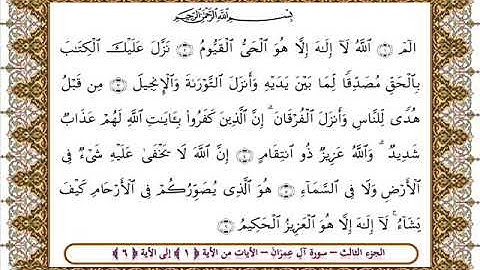 بِسْمِ اللَّهِ الرَّحْمَٰنِ الرَّحِيمِ
الٓمٓ ۝١ ٱللَّهُ لَآ إِلَٰهَ إِلَّا هُوَ ٱلْحَىُّ ٱلْقَيُّومُ ۝٢ نَزَّلَ عَلَيْكَ ٱلْكِتَٰبَ
بِٱلْحَقِّ مُصَدِّقًا لِّمَا بَيْنَ يَدَيْهِ وَأَنزَلَ ٱلتَّوْرَىٰةَ وَٱلْإِنجِيلَ ۝٣ مِن قَبْلُ
هُدًى لِّلنَّاسِ وَأَنزَلَ ٱلْفُرْقَانَ ۗ إِنَّ ٱلَّذِينَ كَفَرُوا۟ بِـَٔايَٰتِ ٱللَّهِ لَهُمْ عَذَابٌ
شَدِيدٌ ۗ وَٱللَّهُ عَزِيزٌ ذُو ٱنتِقَامٍ ۝٤ إِنَّ ٱللَّهَ لَا يَخْفَىٰ عَلَيْهِ شَىْءٌ فِى
ٱلْأَرْضِ وَلَا فِى ٱلسَّمَآءِ ۝٥ هُوَ ٱلَّذِى يُصَوِّرُكُمْ فِى ٱلْأَرْحَامِ كَيْفَ
يَشَآءُ ۚ لَآ إِلَٰهَ إِلَّا هُوَ ٱلْعَزِيزُ ٱلْحَكِيمُ ۝٦
الجزء الثالث – سورة آلِ عِمرَان – الآيات من الآية ﴿١﴾ إلى الآية ﴿٦﴾